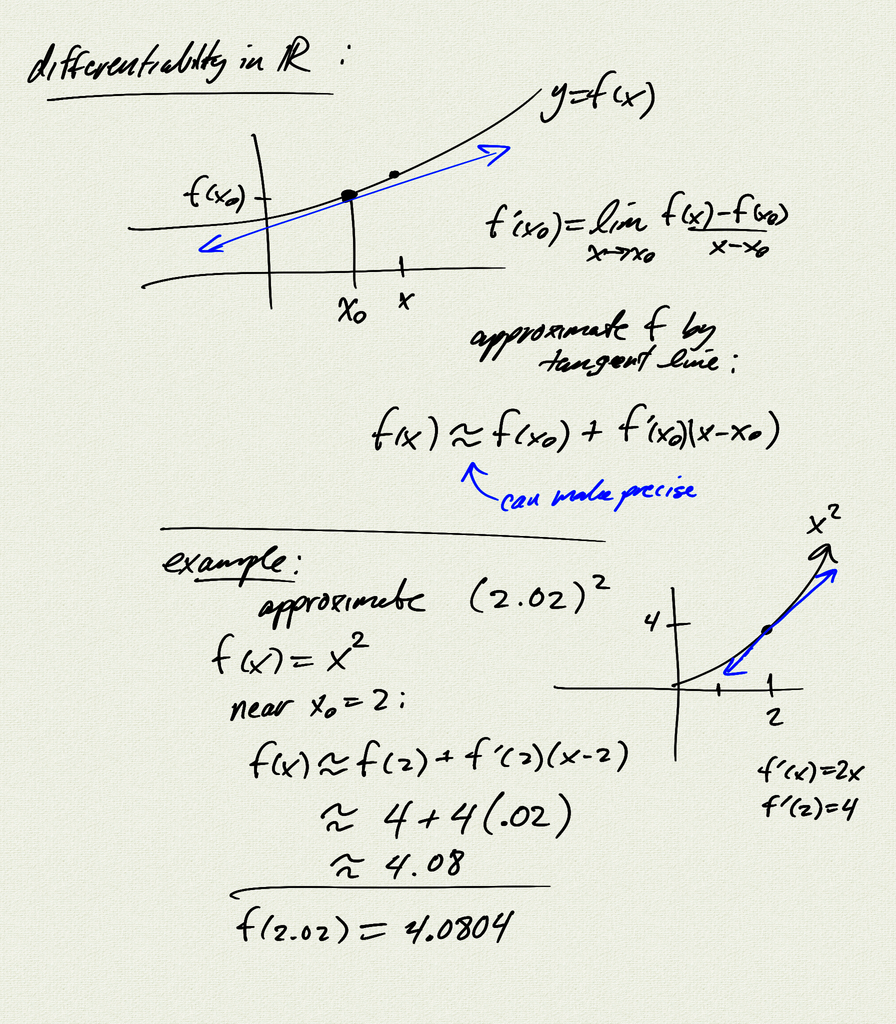 differentiability in ℝ :
y=f(x)
f(x₀)
f'(x₀) = lim f(x)-f(x₀)
x→x₀ x-x₀
x₀ x
approximate f by
tangent line:
f(x) ≈ f(x₀) + f'(x₀)(x-x₀)
can make precise
x²
example:
approximate (2.02)²
4
f(x) = x²
near x₀ = 2:
2
f(x) ≈ f(2) + f'(2)(x-2)
f'(x)=2x
f'(2)=4
≈ 4+4(.02)
≈ 4.08
f(2.02) = 4.0804